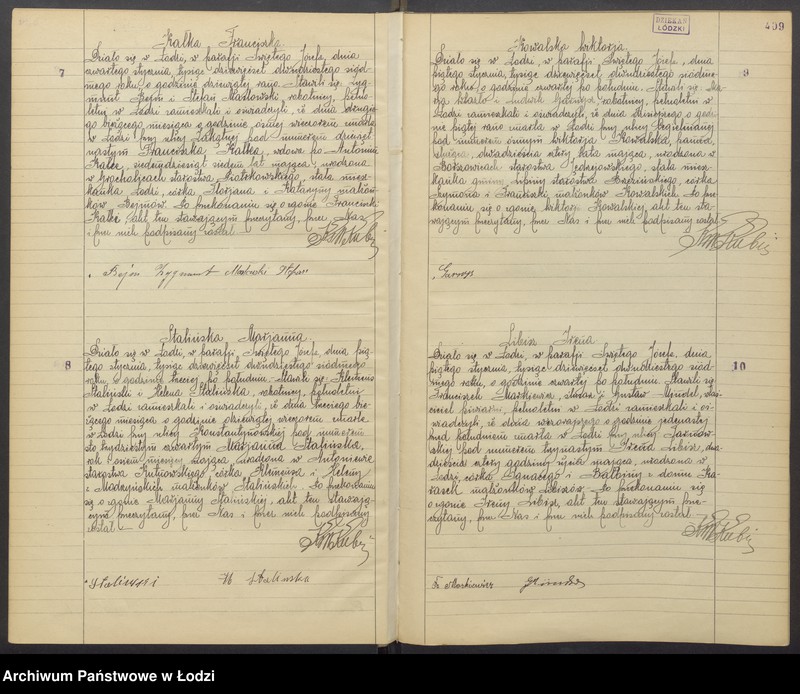 Kalka Franciszka
7
Działo się w Łodzi, w parafji Świętego Józefa, dnia
czwartego stycznia, tysiąc dziewięćset dwudziestego siód-
mego roku, o godzinie dziewiątej rano. Stawili się: Zyg-
munt Bejm i Stefan Masłowski, robotnicy, pełno-
letni w Łodzi zamieszkali i oświadczyli, iż dnia drugie-
go bieżącego miesiąca o godzinie ósmej wieczorem umarła
w Łodzi przy ulicy Łąkotnej pod numerem dziewięt-
nastym Franciszka Kalka, wdowa po Antonim
Kalce, siedemdziesiąt siedem lat mająca, urodzona
w Krocholicach starostwa Piotrkowskiego, stała miesz-
kanka Łodzi, córka Florjana i Katarzyny małżon-
ków Bejmów. Po przekonaniu się o zgonie Franciszki
Kalki akt ten stawającym przeczytany, przez Nas
i przez nich podpisany został.
Bejm Zygmunt Masłowski Stefan
Stalińska Marjanna
8
Działo się w Łodzi, w parafji Świętego Józefa, dnia pią-
tego stycznia, tysiąc dziewięćset dwudziestego siódmego
roku, o godzinie trzeciej po południu. Stawili się: Klemens
Staliński i Helena Stalińska, robotnicy, pełnoletni
w Łodzi zamieszkali i oświadczyli, iż dnia trzeciego bie-
żącego miesiąca o godzinie dziewiątej wieczorem umarła
w Łodzi przy ulicy Konstantynowskiej pod numerem
sto trzydziestym czwartym Marjanna Stalińska,
rok i osiem miesięcy mająca, urodzona w Antoniewie
starostwa Kutnowskiego, córka Klemensa i Heleny
z Madzyńskich małżonków Stalińskich. Po przekonaniu
się o zgonie Marjanny Stalińskiej, akt ten stawają-
cym przeczytany, przez Nas i przez nich podpisany
został.
Staliński H Stalińska
DZIEKAN
ŁÓDZKI
409
Kowalska Wiktorja
9
Działo się w Łodzi, w parafji Świętego Józefa, dnia
piątego stycznia, tysiąc dziewięćset dwudziestego siódme-
go roku, o godzinie czwartej po południu. Stawili się:
i Ludwik robotnicy, pełnoletni w
Łodzi zamieszkali i oświadczyli, iż dnia dzisiejszego o godzi-
nie piątej rano umarła w Łodzi przy ulicy Cegielnianej
pod numerem ósmym Wiktorja Kowalska, panna,
służąca, dwadzieścia cztery lata mająca, urodzona w
starostwa Jędrzejowskiego, stała miesz-
kanka gminy starostwa córka
Szymona i Franciszki małżonków Kowalskich. Po prze-
konaniu się o zgonie Wiktorji Kowalskiej, akt ten sta-
wającym przeczytany, przez Nas i przez nich podpisany został.
Libisz Irena
10
Działo się w Łodzi, w parafji Świętego Józefa, dnia
piątego stycznia, tysiąc dziewięćset dwudziestego siód-
mego roku, o godzinie czwartej po południu. Stawili się:
Franciszek Markiewicz, stróż i Gustaw właś-
ciciel piwiarni, pełnoletni w Łodzi zamieszkali i oś-
wiadczyli, iż dnia wczorajszego o godzinie jedenastej
przed południem umarła w Łodzi przy ulicy
pod numerem trzynastym Irena Libisz, dwa-
dzieścia cztery godziny życia mająca, urodzona w
Łodzi, córka Ignacego i Balbiny z domu Ka-
małżonków Libiszów. Po przekonaniu się
o zgonie Ireny Libisz, akt ten stawającym prze-
czytany, przez Nas i przez nich podpisany został.
Fr Markiewicz
Archiwum Państwowe w Łodzi